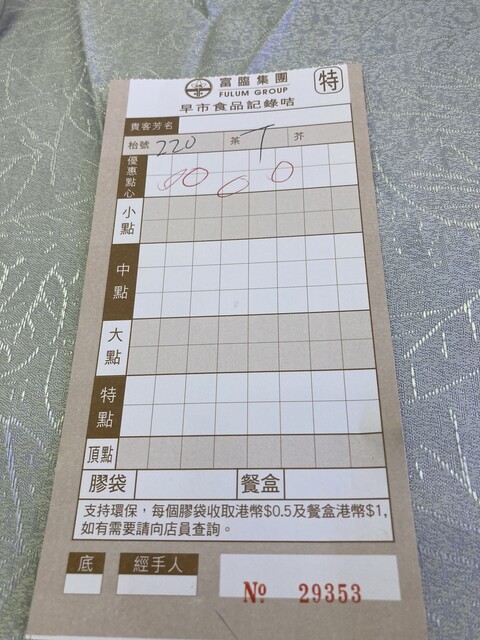 富臨集團
FULUM GROUP
特
早市食品記錄咭
貴客芳名
枱號 220 茶 T 芥
優惠點心
小點
中點
大點
特點
頂點
膠袋 餐盒
支持環保，每個膠袋收取港幣$0.5及餐盒港幣$1,
如有需要請向店員查詢。
底 經手人
Nº 29353